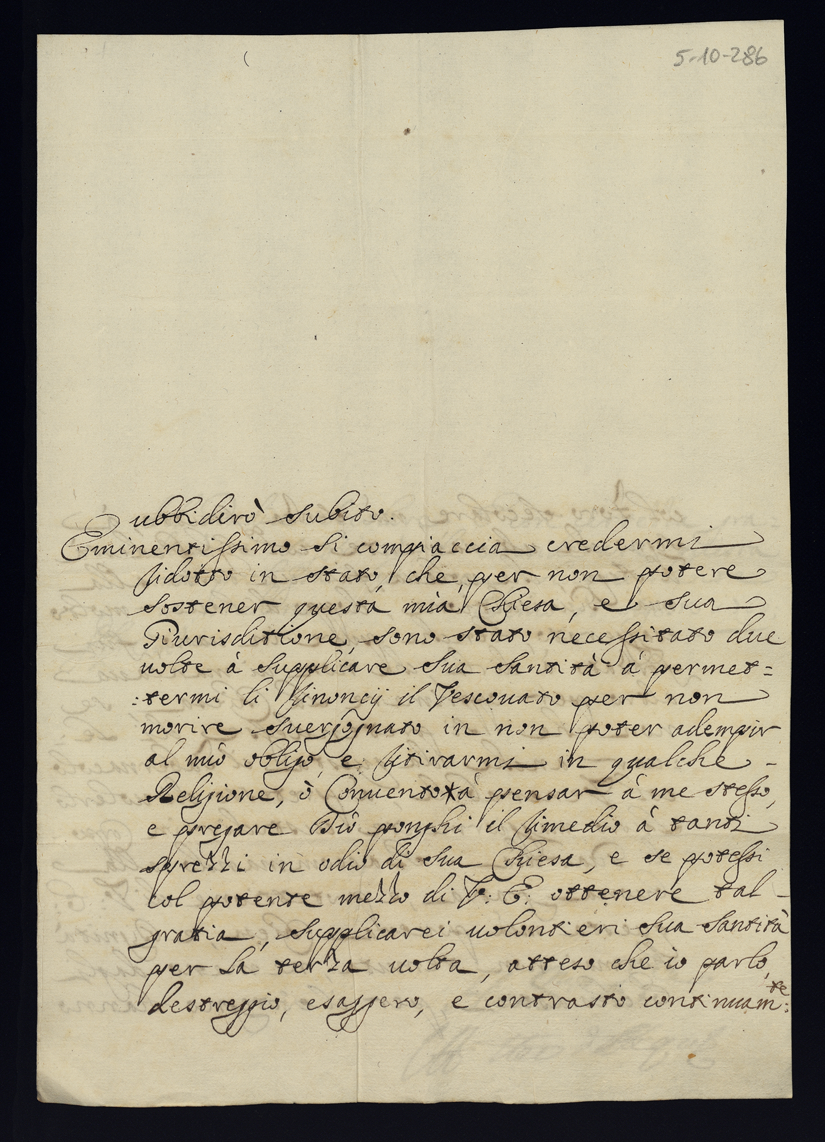 5-10-286
ubbidirò subito.
Eminentissimo si compiaccia credermi
ridotto in stato, che per non potere
sostener questa mia Chiesa, e sua
Giurisditione, sono stato necessitato due
volte à supplicare sua santità à permet=
:termi li rinoncij il Vescovato per non
morire svergognato in non poter adempir
al mio obligo, e ritirarmi in qualche -
Religione, ò Convento à pensar à me stesso,
e pregare Dio ponghi il rimedio à tanti
sprezzi in odio di sua Chiesa, e se potessi
col potente mezzo di V: E: ottenere tal -
gratia, supplicarei volontieri sua santità
per la terza volta, atteso che io parlo,
destreggio, esaggero, e contrasto continuam:te